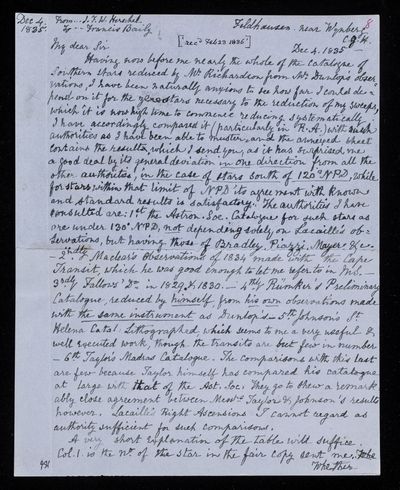 Dec 4. From... J. F. W. Herschel. Feldhausen. near Wynberg 8
1835. To... Francis Baily C.G.H.
[recd. Feb 23 1836] Dec 4. 1835
My dear Sir
Having now before me nearly the whole of the catalogue of
Southern stars reduced by Mr Richardson from Mr Dunlop's obser
vations, I have been naturally anxious to see how far I could de-
pend on it for the zero stars necessary to the reduction of my sweeps,
which it is now high time to commence reducing systematically.
I have accordingly compared it (particularly in R.A.) with such
authorities as I have been able to muster, and the annexed sheet
contains the results, which I send you, as it has surprised me
a good deal by its general deviation in one direction from all the
other authorities, in the case of stars South of 120° NPD, while
for stars within that limit of NPD its agreement with known
and standard results is satisfactory. The authorities I have
consulted are: 1st the Astron. Soc. Catalogue for such stars as
are under 130° NPD, not depending solely on Lacaille's ob-
servations, but having those of Bradley, Piazzi, Mayer &c.
— 2ndly Maclear's Observations of 1834 made with the Cape
Transit, which he was good enough to let me refer to in MS. —
3rdly Fallows' Do. in 1829 & 1830. — 4thly Rümker's Preliminary
Catalogue, reduced by himself, from his own observations made
with the same instrument as Dunlop's — 5th Johnson's St.
Helena Catal. Lithographed which seems to me a very useful &
well executed work, though the transits are but few in number
— 6th Taylor's Madras Catalogue. The comparisons with this last
are few because Taylor himself has compared his catalogue
at large with that of the Ast. Soc. They go to shew a remark
ably close agreement between Messrs Taylor & Johnson's results
however. Lacaille's Right Ascensions I cannot regard as
authority sufficient for such comparisons.
A very short explanation of the table will suffice.
Col. 1. is the No. of the star in the fair copy sent me.
Whether